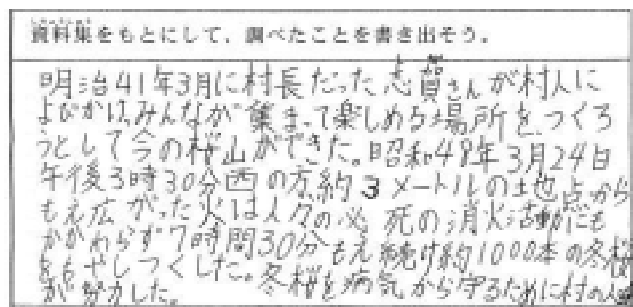 資料集をもとにして、調べたことを書き出そう。
明治41年3月に村長だった志賀さんが村人に
よびかけ、みんなが集まって楽しめる場所をつくろ
うとして今の桜山ができた。昭和48年3月24日
午後3時30分西の方、約3メートルの地点から
もえ広がった火は人々の必死の消火活動にも
かかわらず7時間30分もえ続け約1000本の冬桜
をもやしつくした。冬桜を病気から守るために村の人
が努力した。